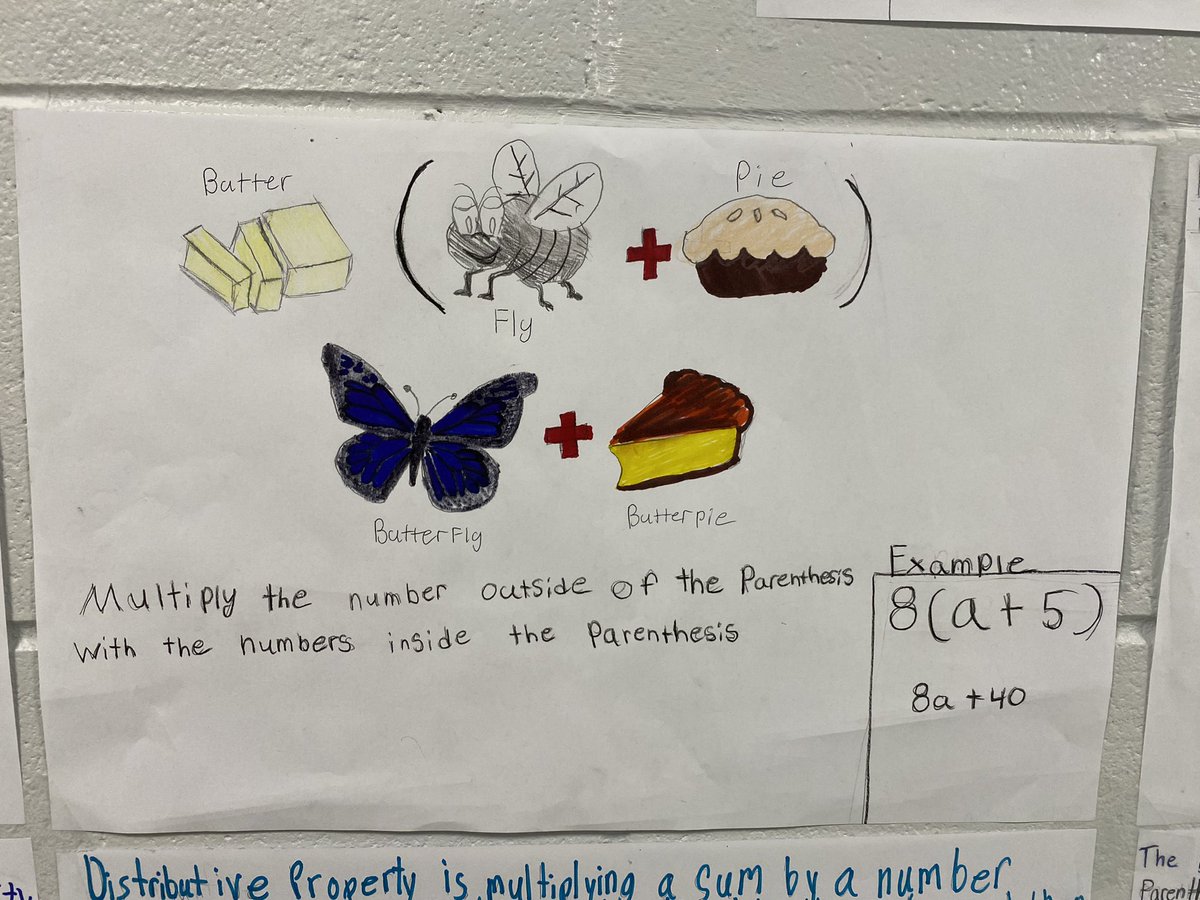 Butter
Pie
Fly
ButterFly
Butterpie
Multiply the number outside of the Parenthesis
with the numbers inside the Parenthesis
Example
8(a+5)
8a +40
Distributive Property is multiplying a sum by a number
The
Parenth